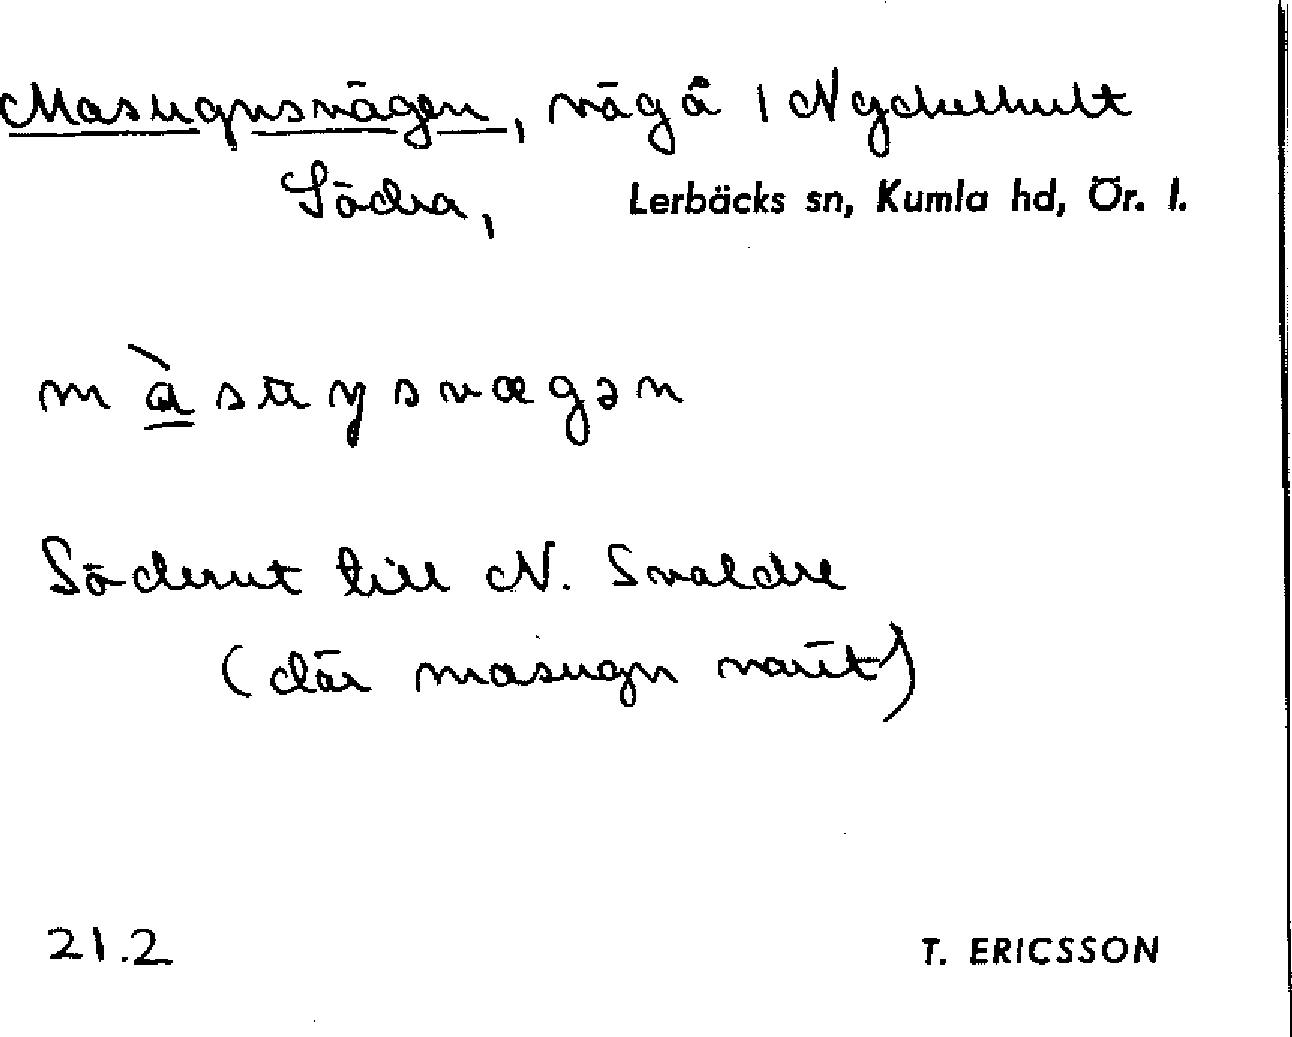 Masugnsvägen, väg å 1 Nyckelhult
Södra, Lerbäcks sn, Kumla hd, Ör. l.
Söderut till N. Svaldre
(där masugn varit)
21.2 T. ERICSSON